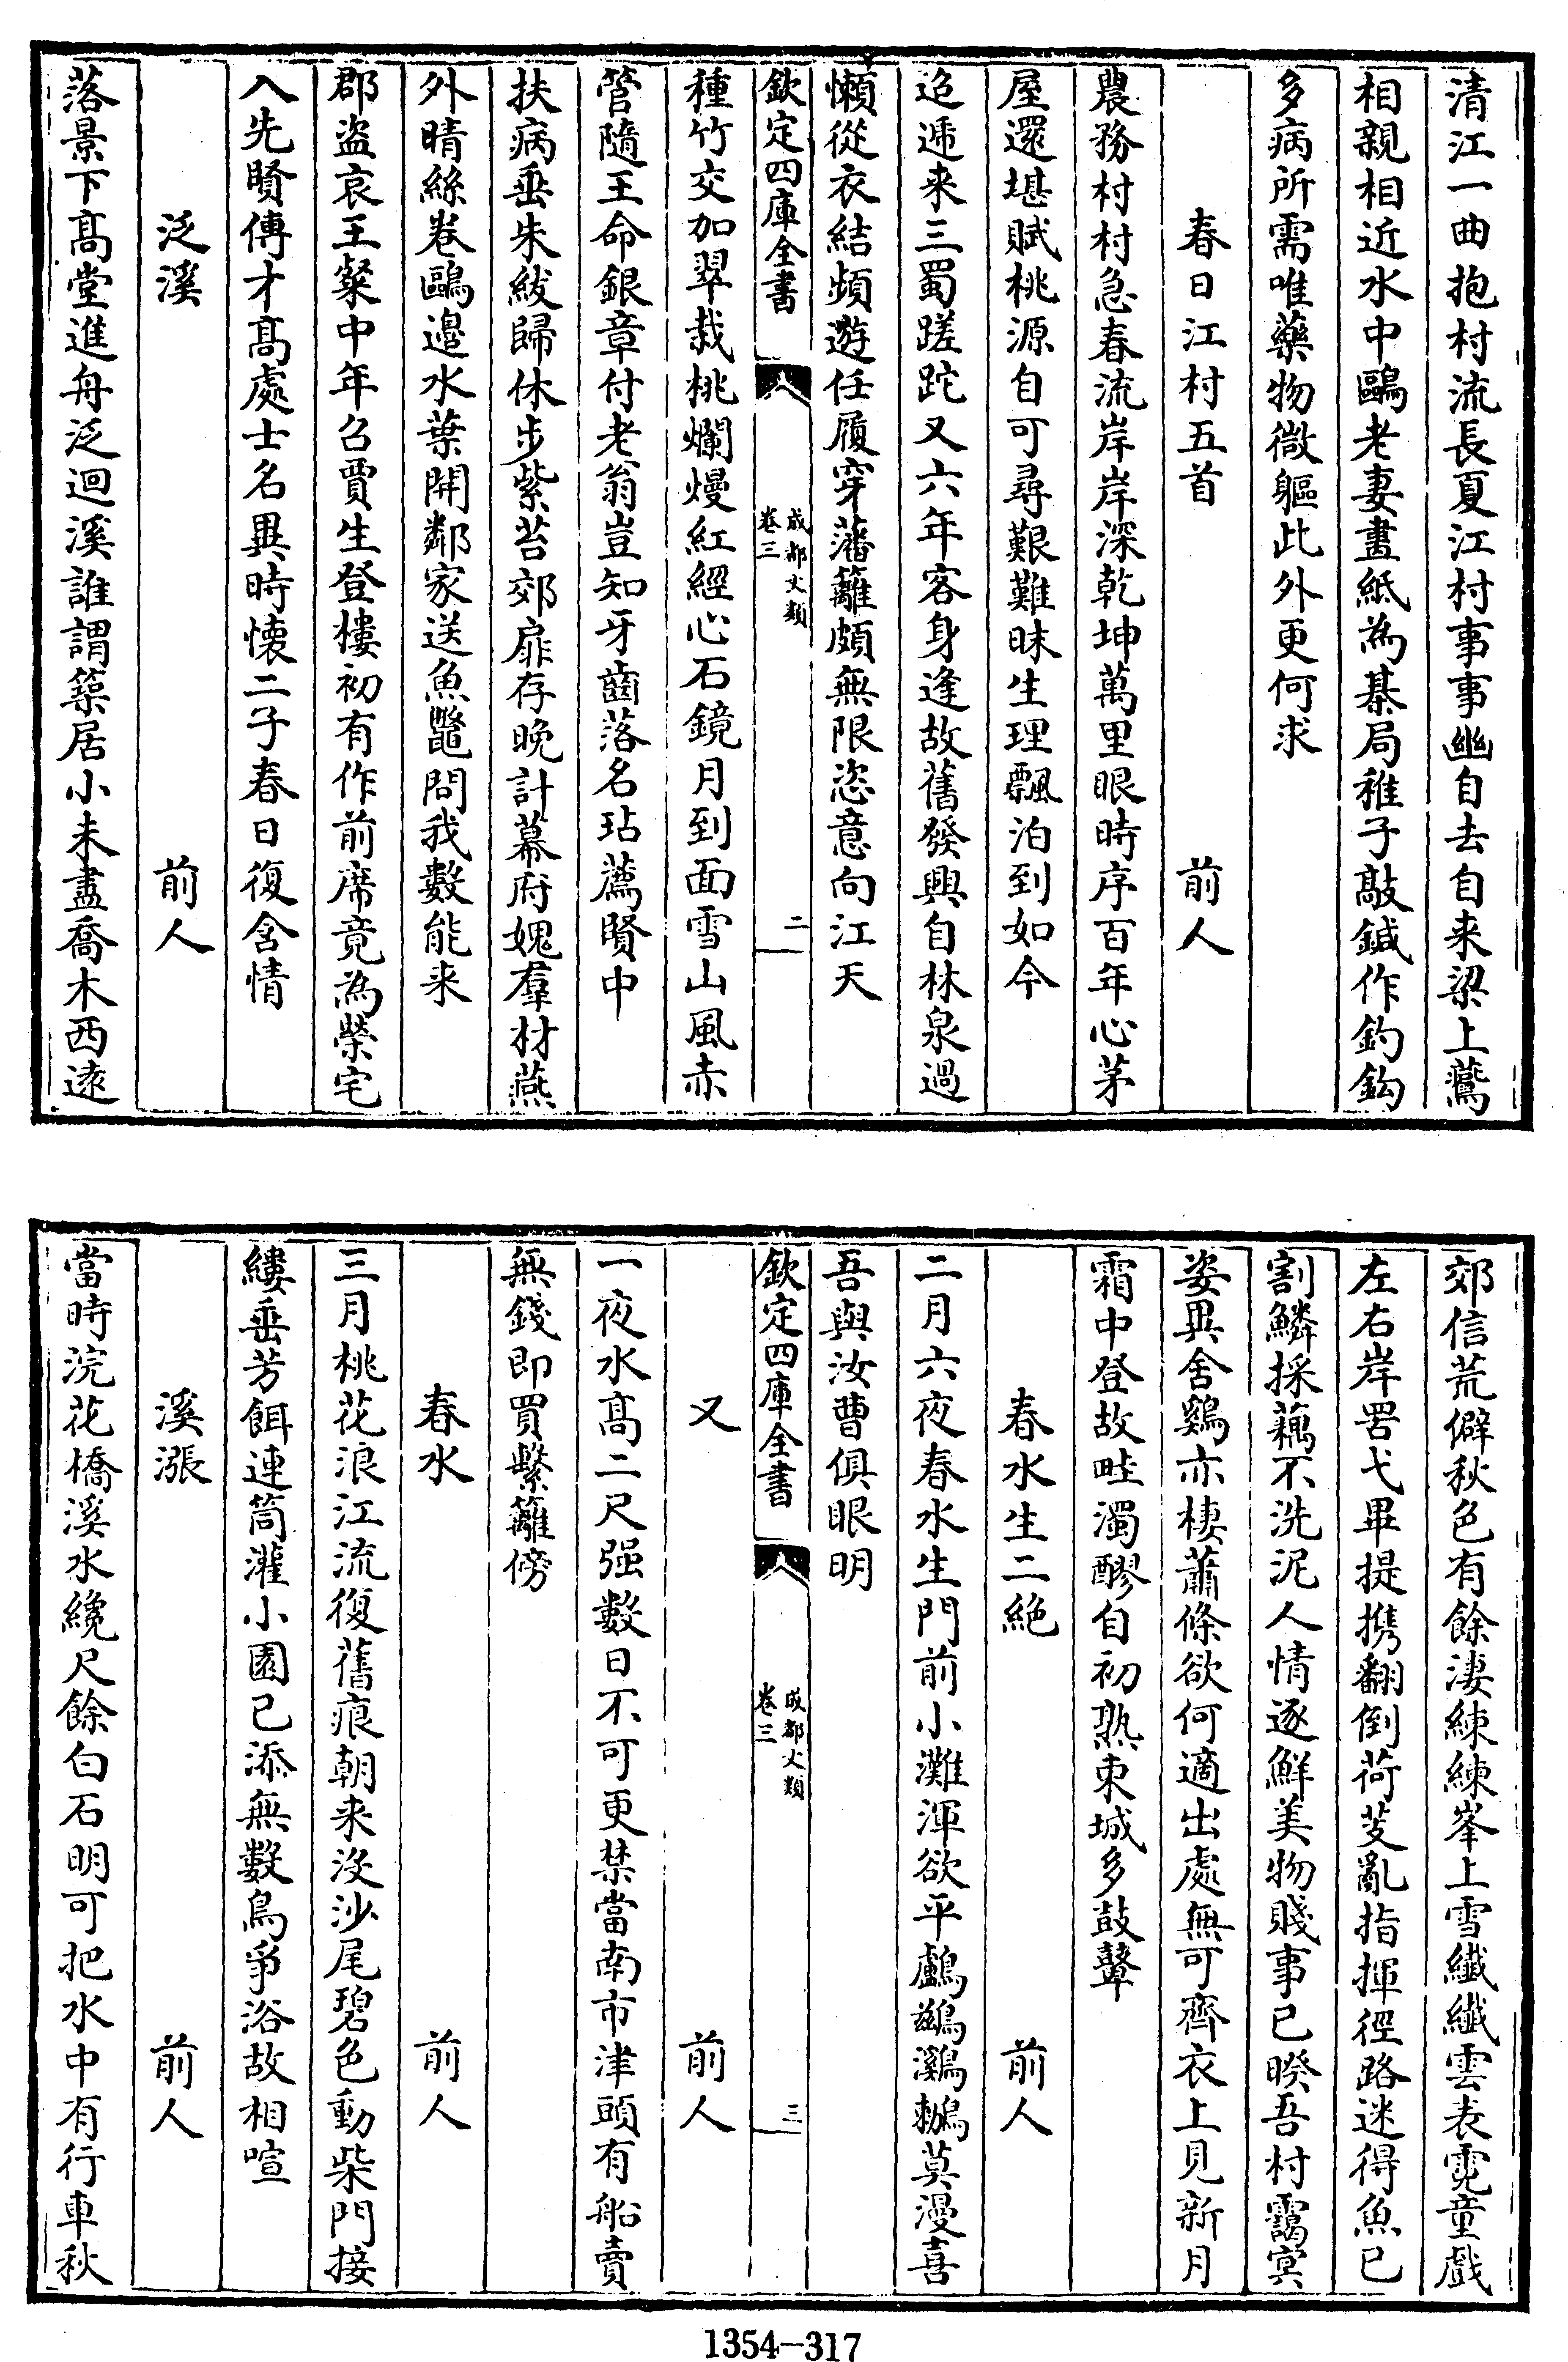 清江一曲抱村流長夏江村事事幽自去自来梁上鷰
相親相近水中鷗老妻畫紙為棊局稚子敲鍼作釣鈎
多病所需唯藥物微軀此外更何求
春日江村五首 前人
農務村村急春流岸岸深乾坤萬里眼時序百年心茅
屋還堪賦桃源自可尋艱難昧生理飄泊到如今
迢遞来三蜀蹉跎又六年客身逢故舊發興自林泉過
懶從衣結頻遊任履穿藩籬頗無限恣意向江天
欽定四庫全書 成都文類 卷三 二
種竹交加翠栽桃爛熳紅經心石鏡月到面雪山風赤
管隨王命銀章付老翁豈知牙齒落名玷薦賢中
扶病垂朱紱歸休步紫苔郊扉存晚計幕府媿羣材燕
外晴絲卷鷗邉水葉開鄰家送魚鼈問我數能来
郡盗哀王粲中年召賈生登樓初有作前席竟為榮宅
入先賢傳才髙處士名異時懐二子春日復含情
泛溪 前人
落景下髙堂進舟泛迴溪誰謂築居小未盡喬木西逺
郊信荒僻秋色有餘淒練練峯上雪纎纎雲表霓童戱
左右岸罟弋畢提携翻倒荷芰亂指揮徑路迷得魚已
割鱗採藕不洗泥人情逐鮮美物賤事已暌吾村靄㝠
姿異舍鷄亦棲蕭條欲何適出處無可齊衣上見新月
霜中登故畦濁醪自初熟東城多鼓鼙
春水生二絶 前人
二月六夜春水生門前小灘渾欲平鸕鷀鸂鶒莫漫喜
吾與汝曹俱眼明
欽定四庫全書 成都文類 卷三 三
又 前人
一夜水髙二尺强數日不可更禁當南市津頭有船賣
無錢即買繫籬傍
春水 前人
三月桃花浪江流復舊痕朝来没沙尾碧色動柴門接
縷垂芳餌連筒灌小園已添無數鳥爭浴故相喧
溪漲 前人
當時浣花橋溪水纔尺餘白石明可把水中有行車秋
1354-317